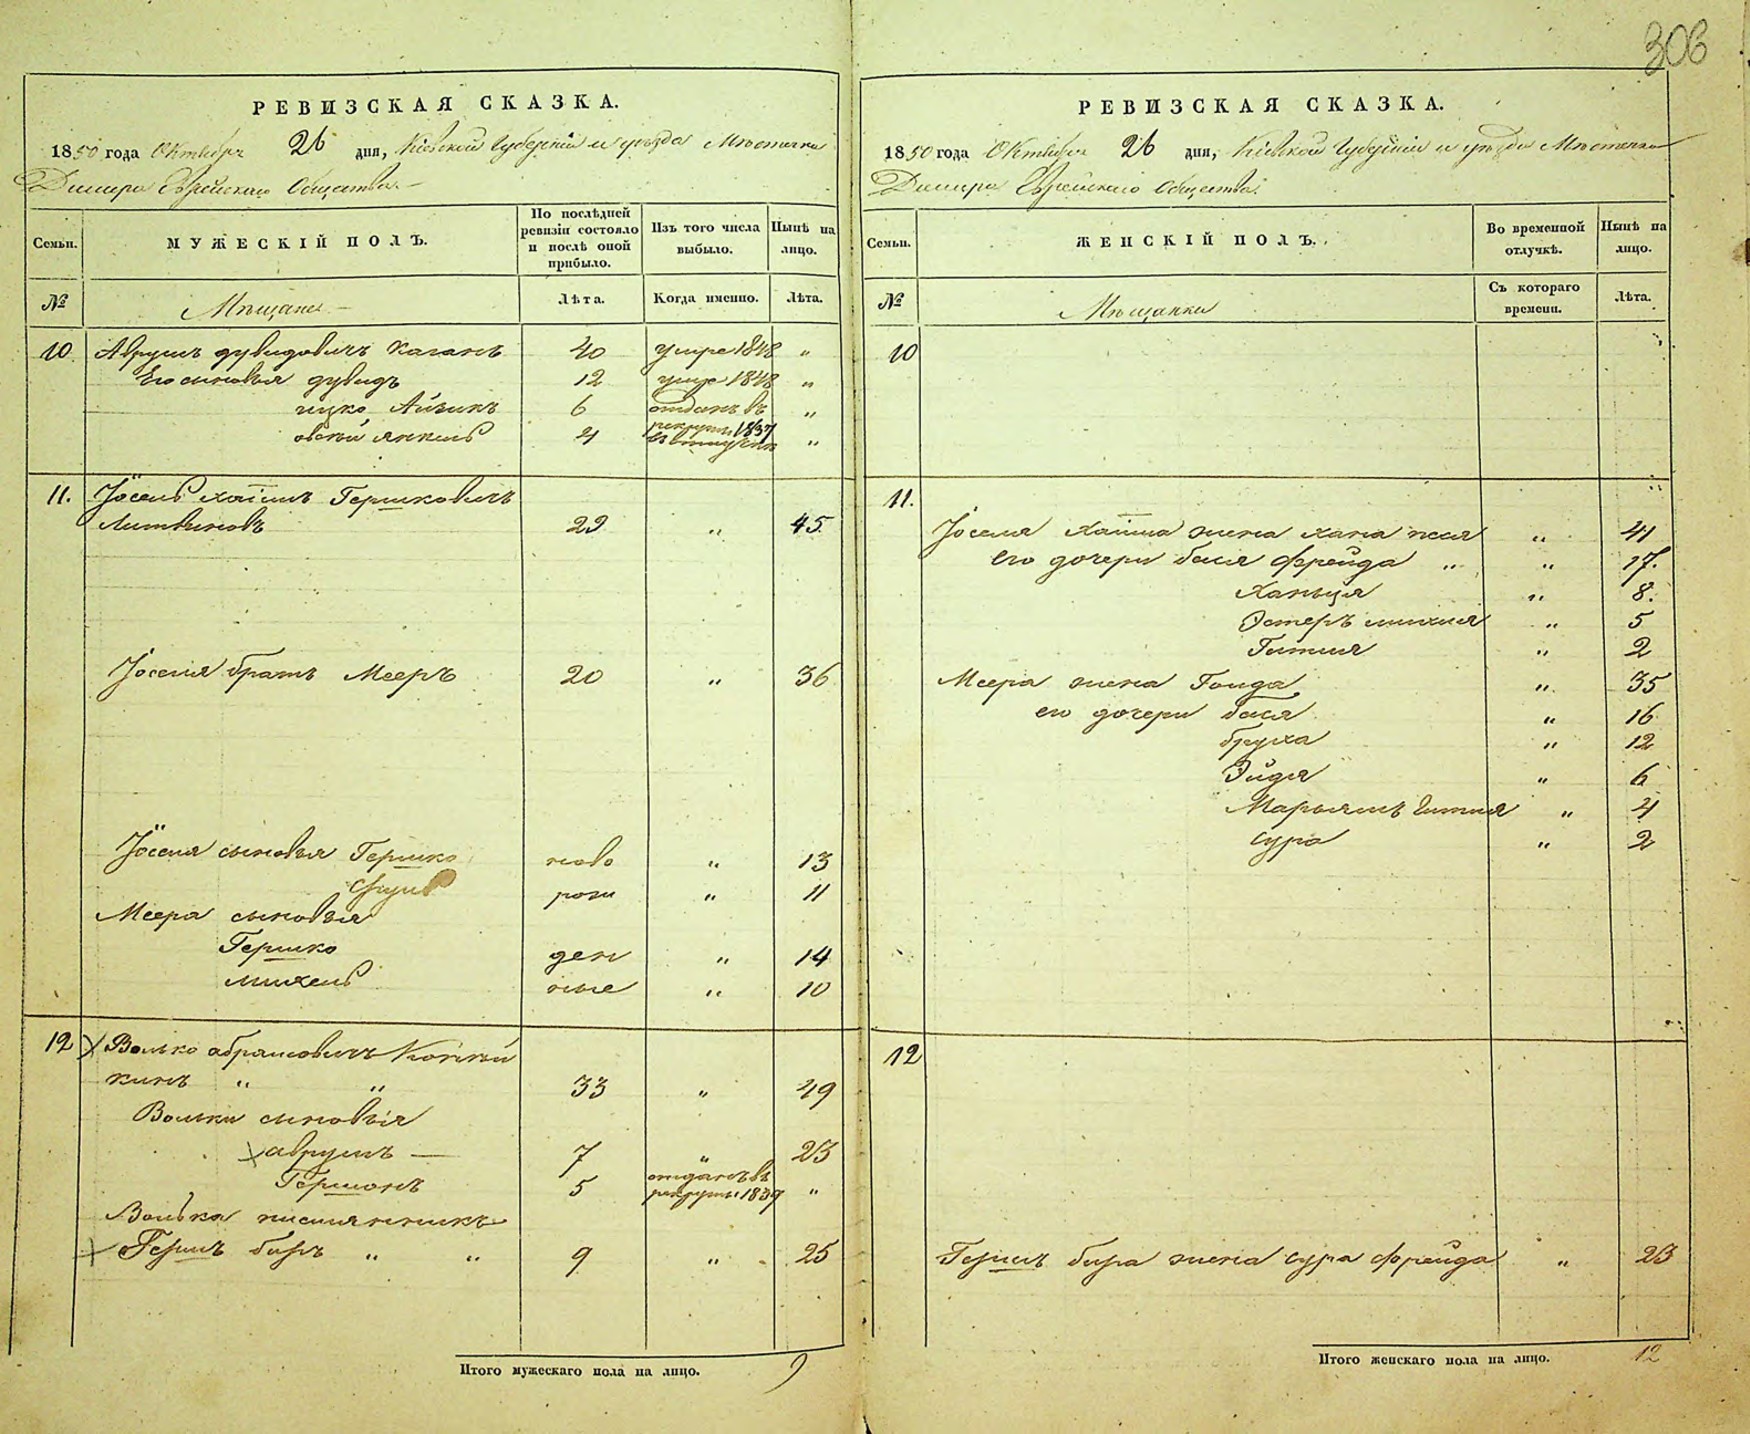 306
РЕВИЗСКАЯ СКАЗКА.
1850 года Октября 26 дня, Кіевской Губерніи и уѣзда Мѣстечка
Димира Еврейскаго Общества
Семьи.
МУЖЕСКІЙ ПОЛЪ.
По послѣдней ревизіи состояло и послѣ оной прибыло.
Изъ того числа выбыло.
Нынѣ на лицо.
№
Мѣщане
Лѣта.
Когда именно.
Лѣта.
10. Аврумъ дувидовичъ Каганъ 40 умре 1848 „
Его сыновья дувидъ 12 умре 1848 „
ицко Айзикъ 6 отданъ въ рекруты 1837 „
янкель 4 „
11. Іосель хаимъ Гершковичъ
Литвиновъ 29 „ 45
Іоселя братъ Мееръ 20 „ 36
Іоселя сыновья Гершко ново „ 13
рож „ 11
Меера сыновья
Гершко ден „ 14
михель ные „ 10
12 Волько абрамовичъ
кинъ „ „ 33 „ 49
Вольки сыновья
аврумъ — 7 „ 23
Гершонъ 5 отданъ въ рекруты 1839 „
Волька племянникъ
Гершъ беръ „ „ 9 „ 25
Итого мужескаго пола на лицо. 9
РЕВИЗСКАЯ СКАЗКА.
1850 года Октября 26 дня, Кіевской Губерніи и уѣзда Мѣстечка
Димира Еврейскаго Общества
Семьи.
ЖЕНСКІЙ ПОЛЪ.
Во временной отлучкѣ.
Нынѣ на лицо.
№
Мѣщанки
Съ котораго времени.
Лѣта.
10
11.
Іоселя Хаима жена хана песя „ 41
Его дочери бася фрейда „ „ 17.
Ханьця „ 8.
Эстеръ „ 5
Гитля „ 2
Меера жена Голда „ 35
его дочери бася „ 16
бруха „ 12
Эйдля „ 6
Марьямъ Гитля „ 4
сура „ 2
12
Гершъ бера жена сура фрейда „ 23
Итого женскаго пола на лицо. 12